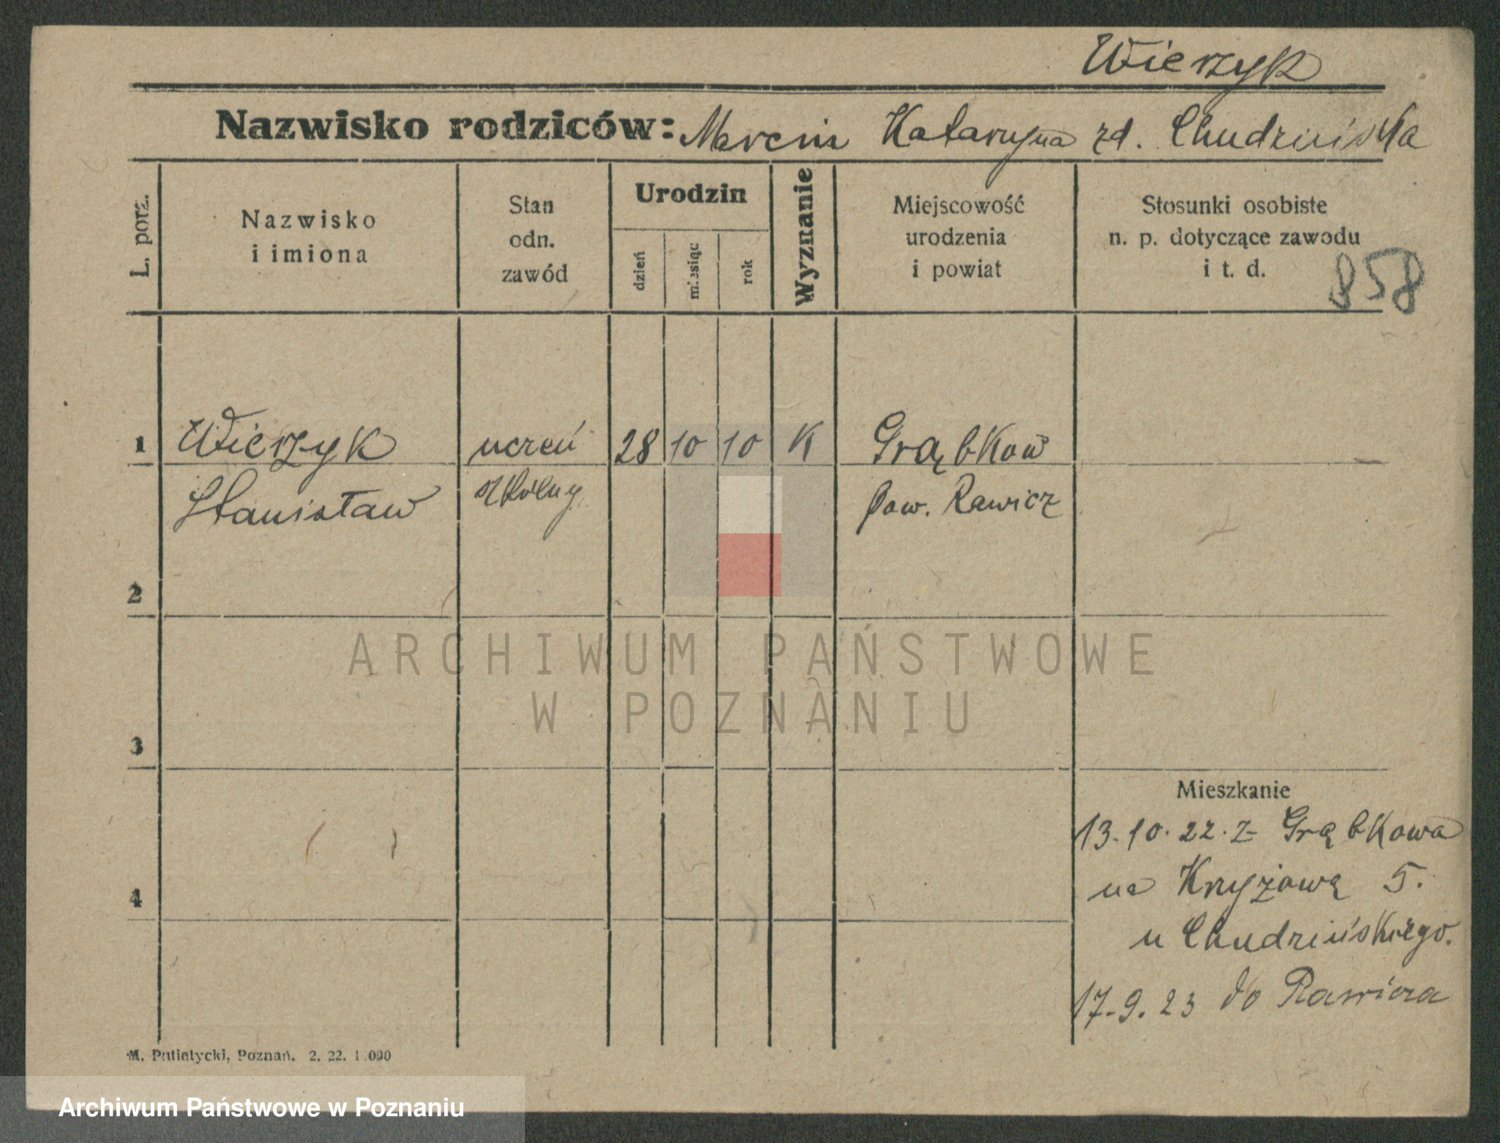 Wierzyk
Nazwisko rodziców: Marcin Katarzyna zd. Chudzińska
L. porz.
Nazwisko
i imiona
Stan
odn.
zawód
Urodzin
dzień
miesiąc
rok
Wyznanie
Miejscowość
urodzenia
i powiat
Stosunki osobiste
n. p. dotyczące zawodu
i t. d.
858
1 Wierzyk uczeń 28 10 10 K Grąbkow
Stanisław szkolny pow. Rawicz
2
ARCHIWUM PAŃSTWOWE
W POZNANIU
3
Mieszkanie
13.10.22. z Grąbkowa
na Kryżową 5.
4
u Chudzińskiego.
17.9.23 do Rawicza
M. Putiatycki, Poznań. 2. 22. 1.000
Archiwum Państwowe w Poznaniu